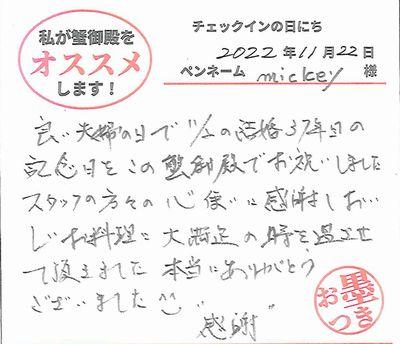 私が蟹御殿を
オススメ
します!
チェックインの日にち
2022年11月22日
ペンネーム mickey 様
良い夫婦の日で 11/2の結婚37年目の
記念日をこの蟹御殿でお祝いしました
スタッフの方々の心使いに感謝しお…
しいお料理に大満足の時を過させ
て頂きました 本当にありがとう
ございました
感謝
お墨つき